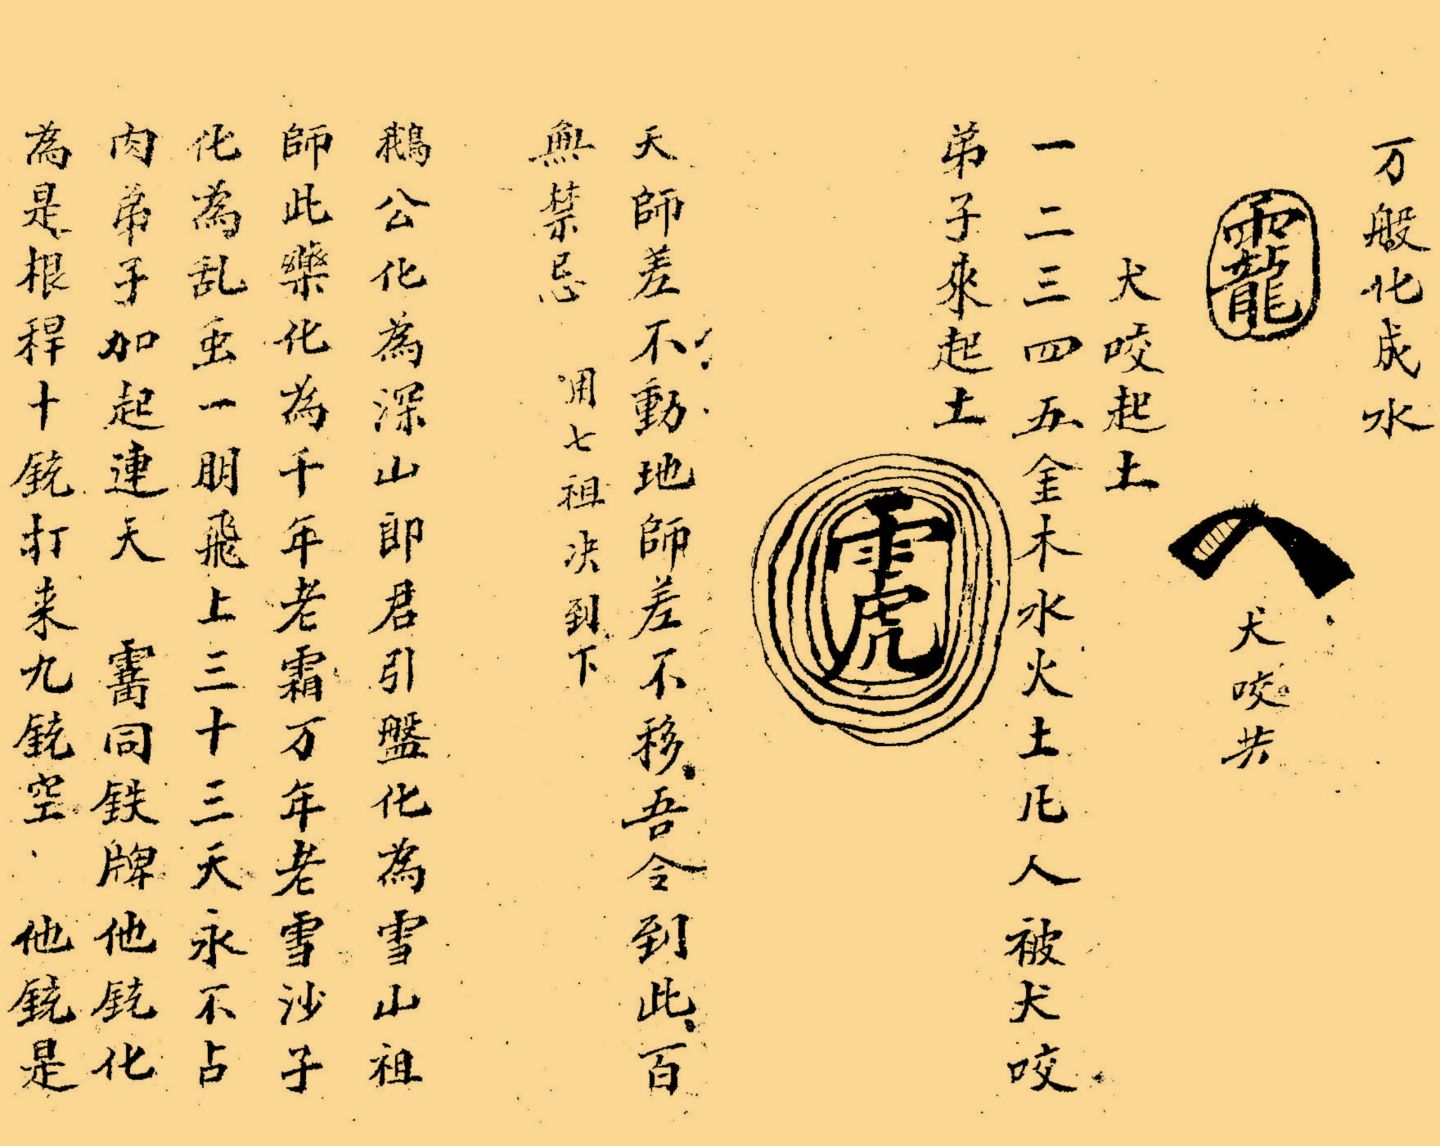 万般化成水
靇
犬咬共
犬咬起土
一二三四五金木水火土凡人被犬咬
弟子來起土
天師差不動地師差不移吾令到此百
無禁忌 用七祖决到下
鵝公化為深山郎君引盤化為雪山祖
師此藥化為千年老霜万年老雪沙子
化為乱虫一朋飛上三十三天永不占
肉弟子加起連天 同铁牌他銃化
為是根稈十銃打来九銃空 他銃是